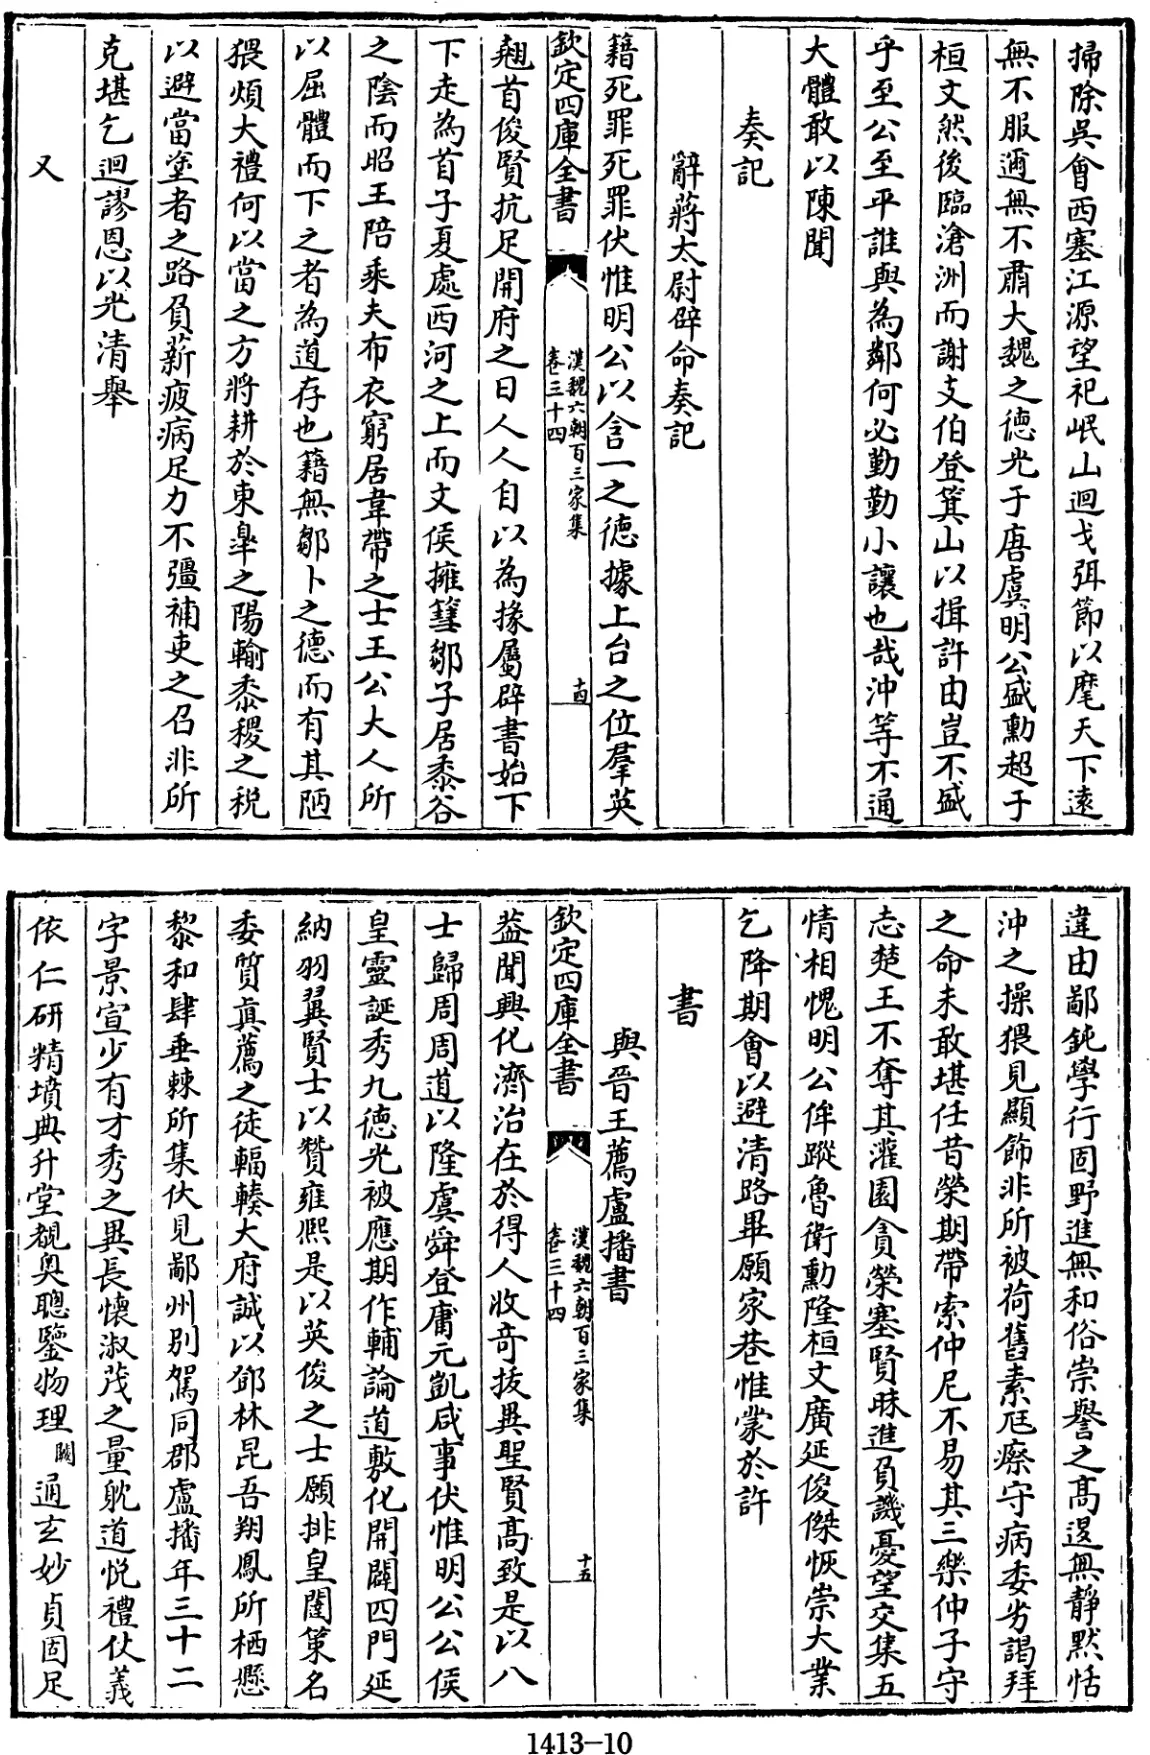 掃除吳會西塞江源望祀岷山迴戈弭節以麾天下遠
無不服邇無不肅大魏之德光于唐虞明公盛勳超于
桓文然後臨滄洲而謝支伯登箕山以揖許由豈不盛
乎至公至平誰與為鄰何必勤勤小讓也哉沖等不通
大體敢以陳聞
奏記
辭蔣太尉辟命奏記
籍死罪死罪伏惟明公以含一之德據上台之位羣英
欽定四庫全書
漢魏六朝百三家集
卷三十四
十四
翹首俊賢抗足開府之日人人自以為掾屬辟書始下
下走為首子夏處西河之上而文侯擁篲鄒子居黍谷
之陰而昭王陪乘夫布衣窮居韋帶之士王公大人所
以屈體而下之者為道存也籍無鄒卜之德而有其陋
猥煩大禮何以當之方將耕於東臯之陽輸黍稷之稅
以避當塗者之路負薪疲病足力不彊補吏之召非所
克堪乞迴謬恩以光清舉
又
違由鄙鈍學行固野進無和俗崇譽之高退無靜默恬
沖之操猥見顯飾非所被荷舊素尫瘵守病委劣謁拜
之命未敢堪任昔榮期帶索仲尼不易其三樂仲子守
志楚王不奪其灌園貪榮塞賢昧進負譏憂望交集五
情相愧明公侔蹤魯衛勳隆桓文廣延俊傑恢崇大業
乞降期會以避清路畢願家巷惟蒙於許
書
與晉王薦盧播書
欽定四庫全書
漢魏六朝百三家集
卷三十四
十五
蓋聞興化濟治在於得人收奇拔異聖賢高致是以八
士歸周周道以隆虞舜登庸元凱咸事伏惟明公公侯
皇靈誕秀九德光被應期作輔論道敷化開闢四門延
納羽翼賢士以贊雍熙是以英俊之士願排皇闥策名
委質眞薦之徒輻輳大府誠以鄧林昆吾翔鳳所栖懸
黎和肆垂棘所集伏見鄙州別駕同郡盧播年三十二
字景宣少有才秀之異長懷淑茂之量躭道悅禮仗義
依仁研精墳典升堂覩奧聰鑒物理闕通玄妙貞固足
1413-10